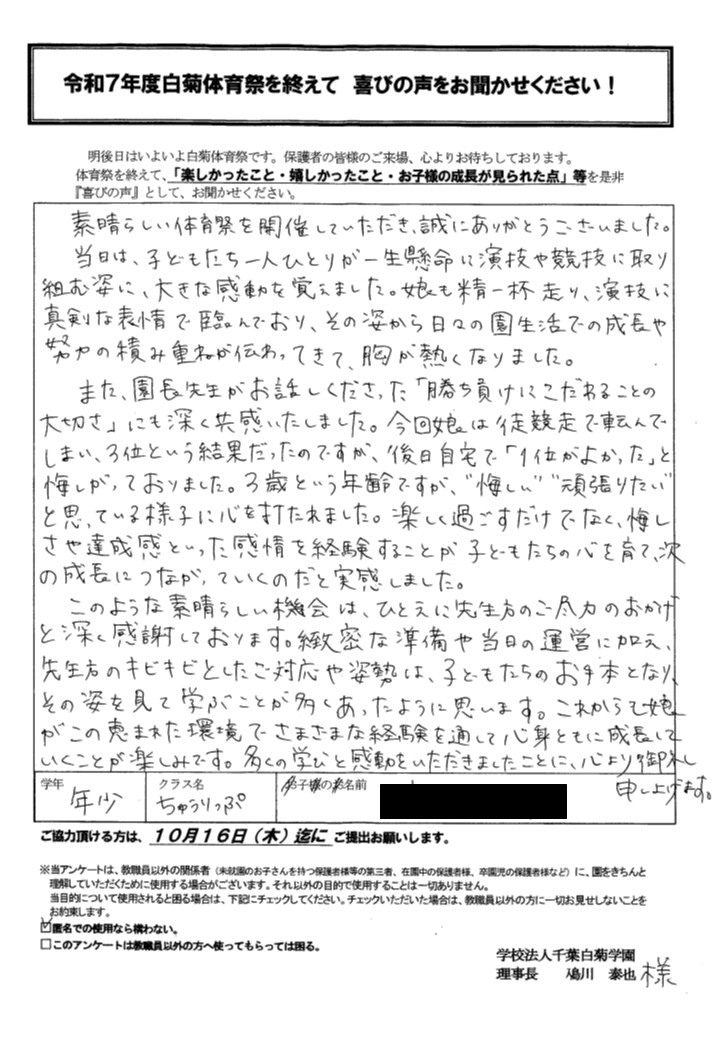 令和7年度白菊体育祭を終えて 喜びの声をお聞かせください!
明後日はいよいよ白菊体育祭です。保護者の皆様のご来場、心よりお待ちしております。
体育祭を終えて、「楽しかったこと・嬉しかったこと・お子様の成長が見られた点」等を是非
『喜びの声』として、お聞かせください。
素晴らしい体育祭を開催していただき、誠にありがとうございました。
当日は、子どもたち一人ひとりが一生懸命に演技や競技に取り
組む姿に、大きな感動を覚えました。娘も精一杯走り、演技に
真剣な表情で臨んでおり、その姿から日々の園生活での成長や
努力の積み重ねが伝わってきて、胸が熱くなりました。
また、園長先生がお話しくださった「勝ち負けにこだわることの
大切さ」にも深く共感いたしました。今回娘は徒競走で転んで
しまい、3位という結果だったのですが、後日自宅で「1位がよかった」と
悔しがっておりました。3歳という年齢ですが、“悔しい”“頑張りたい”
と思っている様子に心を打たれました。楽しく過ごすだけでなく、悔し
さや達成感といった感情を経験することが子どもたちの心を育て、次
の成長につながっていくのだと実感しました。
このような素晴らしい機会は、ひとえに先生方のご尽力のおかげ
と深く感謝しております。緻密な準備や当日の運営に加え、
先生方のキビキビとしたご対応や姿勢は、子どもたちのお手本となり、
その姿を見て学ぶことが多くあったように思います。これからも娘
がこの恵まれた環境でさまざまな経験を通して心身ともに成長して
いくことが楽しみです。多くの学びと感動をいただきましたことに、心より御礼
申し上げます。
学年 年少 クラス名 ちゅうりっぷ お子様のお名前
ご協力頂ける方は、10月16日(木)迄に ご提出お願いします。
※当アンケートは、教職員以外の関係者(未就園のお子さんを持つ保護者様等の第三者、在園中の保護者様、卒園児の保護者様など)に、園をきちんと
理解していただくために使用する場合がございます。それ以外の目的で使用することは一切ありません。
当目的について使用されると困る場合は、下記にチェックしてください。チェックいただいた場合は、教職員以外の方に一切お見せしないことを
お約束します。
☑匿名での使用なら構わない。
□このアンケートは教職員以外の方へ使ってもらっては困る。
学校法人千葉白菊学園
理事長 鳰川 泰也 様